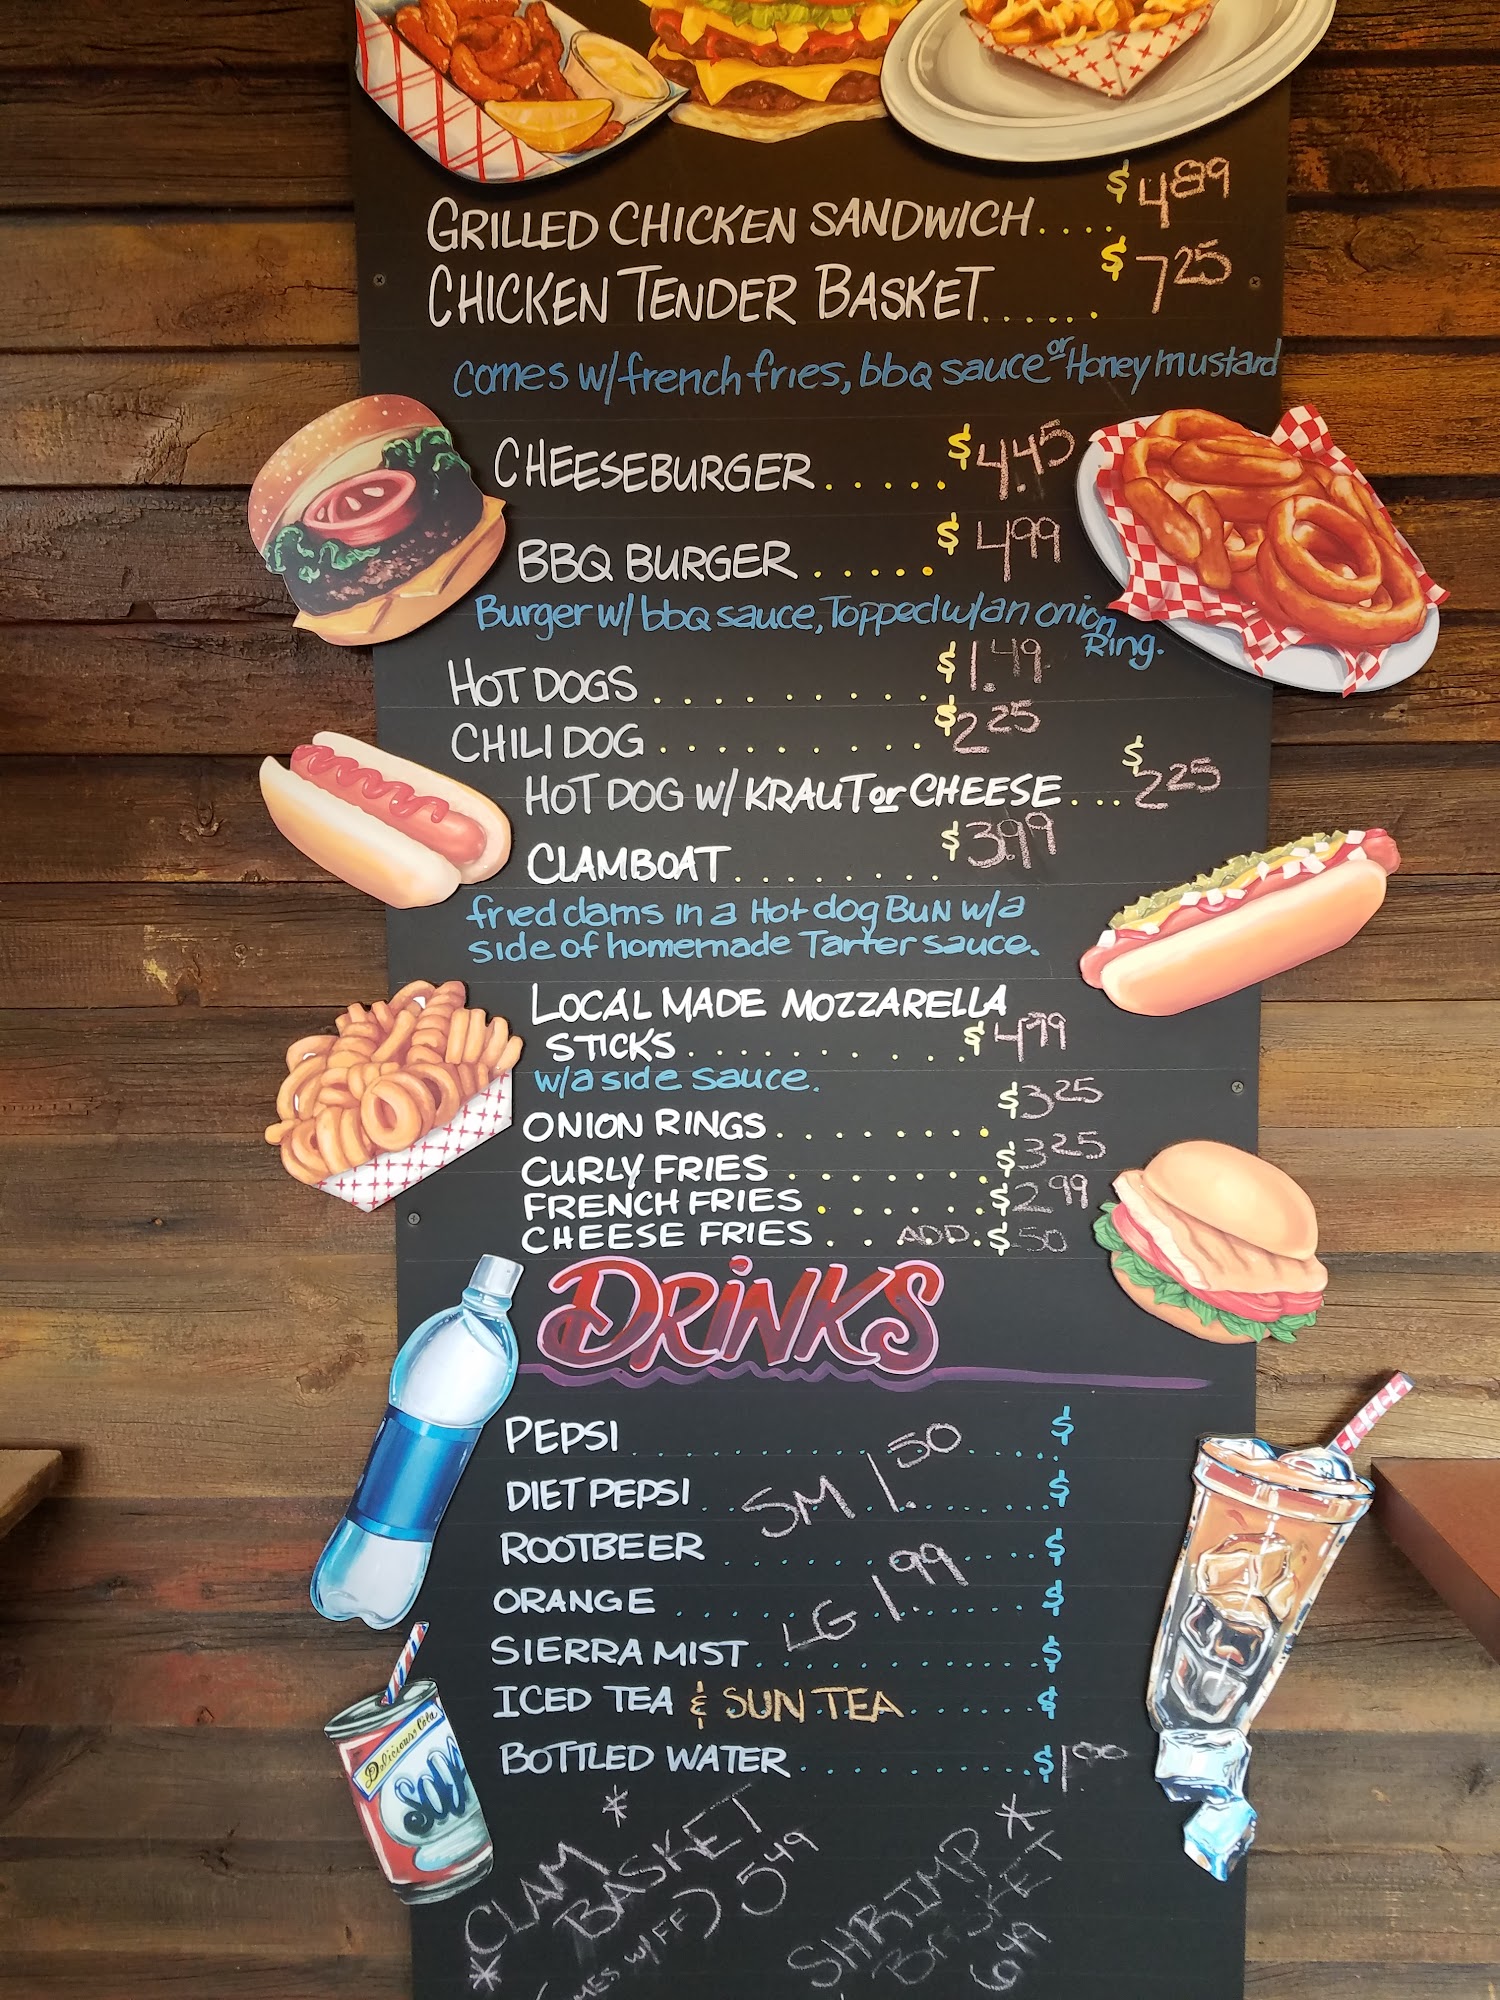 GRILLED CHICKEN SANDWICH.... $4 89
CHICKEN TENDER BASKET...... $7 25
comes w/french fries, bbq sauce or Honey mustard
CHEESEBURGER..... $4.45
BBQ BURGER..... $4 99
Burger w/ bbq sauce, Topped w/an onion
Ring.
HOT DOGS......... $1.49
CHILI DOG......... $2 25
HOT DOG W/ KRAUT or CHEESE... $2 25
CLAMBOAT........ $3.99
fried clams in a Hot dog BUN w/a
side of homemade Tarter sauce.
LOCAL MADE MOZZARELLA
STICKS......... $4 99
w/a side sauce.
ONION RINGS....... $3 25
CURLY FRIES...... $3 25
FRENCH FRIES...... $2 99
CHEESE FRIES.. ADD. $ .50
DRINKS
PEPSI $
DIET PEPSI $
SM 1.50
ROOTBEER $
ORANGE $
LG 1.99
SIERRA MIST $
ICED TEA & SUN TEA $
BOTTLED WATER $1.00
Delicious Cola
SODA
* CLAM
BASKET *
(COMES W/ FF) 5 49
SHRIMP *
BASKET
6 49